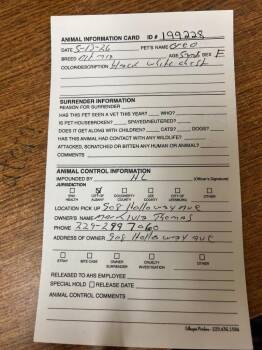 ANIMAL INFORMATION CARD ID # 199228
DATE 5-12-26 PET'S NAME oreo
BREED AGE SEX F
COLOR/DESCRIPTION Black white chest
SURRENDER INFORMATION
REASON FOR SURRENDER
HAS THIS PET SEEN A VET THIS YEAR? WHO?
IS PET HOUSEBROKEN? SPAYED/NEUTERED?
DOES IT GET ALONG WITH CHILDREN? CATS? DOGS?
HAS THIS ANIMAL HAD CONTACT WITH ANY WILDLIFE?
ATTACKED, SCRATCHED OR BITTEN ANY HUMAN OR ANIMAL?
COMMENTS
ANIMAL CONTROL INFORMATION
IMPOUNDED BY HL (Officer's Signature)
JURISDICTION
DOG HEALTH CITY OF ALBANY DOUGHERTY COUNTY LEE COUNTY CITY OF LEESBURG OTHER
LOCATION PICK UP 908 Holloway Ave
OWNER'S NAME Thomas
PHONE 229-299 7060
ADDRESS OF OWNER 908 Holloway ave
STRAY BITE CASE OWNER SURRENDER CRUELTY INVESTIGATION OTHER
RELEASED TO AHS EMPLOYEE
SPECIAL HOLD RELEASE DATE
ANIMAL CONTROL COMMENTS